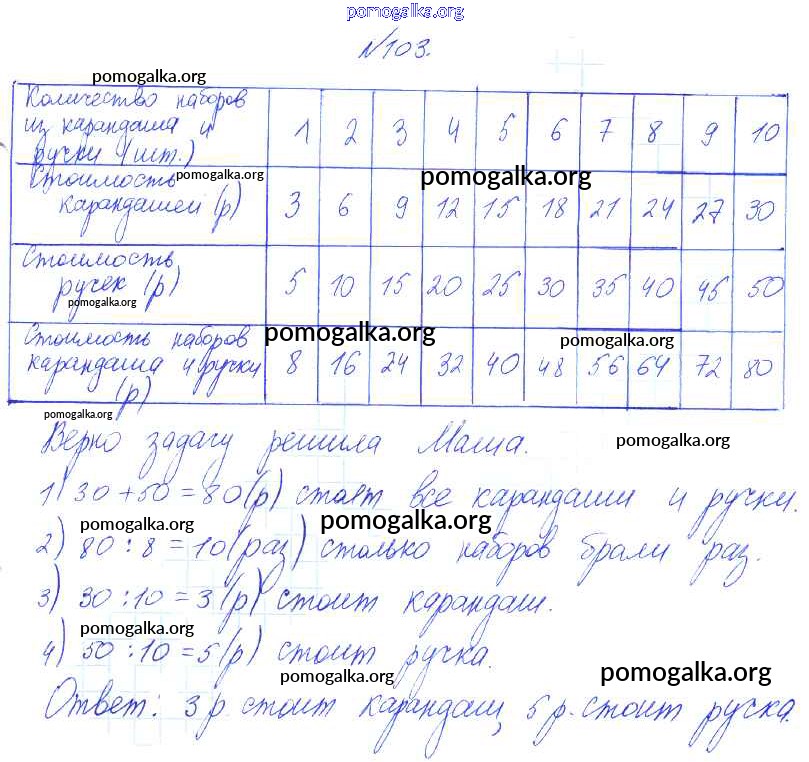 pomogalka.org
№103.
pomogalka.org
Количество наборов
из карандаша и
ручки (шт.) 1 2 3 4 5 6 7 8 9 10
pomogalka.org
pomogalka.org
Стоимость
карандашей (р) 3 6 9 12 15 18 21 24 27 30
Стоимость
ручек (р) 5 10 15 20 25 30 35 40 45 50
pomogalka.org
pomogalka.org
pomogalka.org
Стоимость наборов
карандаша и ручки
(р) 8 16 24 32 40 48 56 64 72 80
pomogalka.org
Верно задачу решила Маша.
pomogalka.org
1) 30 + 50 = 80 (р) стоят все карандаши и ручки.
pomogalka.org
pomogalka.org
2) 80 : 8 = 10 (раз) столько наборов брали раз.
3) 30 : 10 = 3 (р) стоит карандаш.
pomogalka.org
4) 50 : 10 = 5 (р) стоит ручка.
pomogalka.org
pomogalka.org
Ответ: 3 р. стоит карандаш, 5 р. стоит ручка.